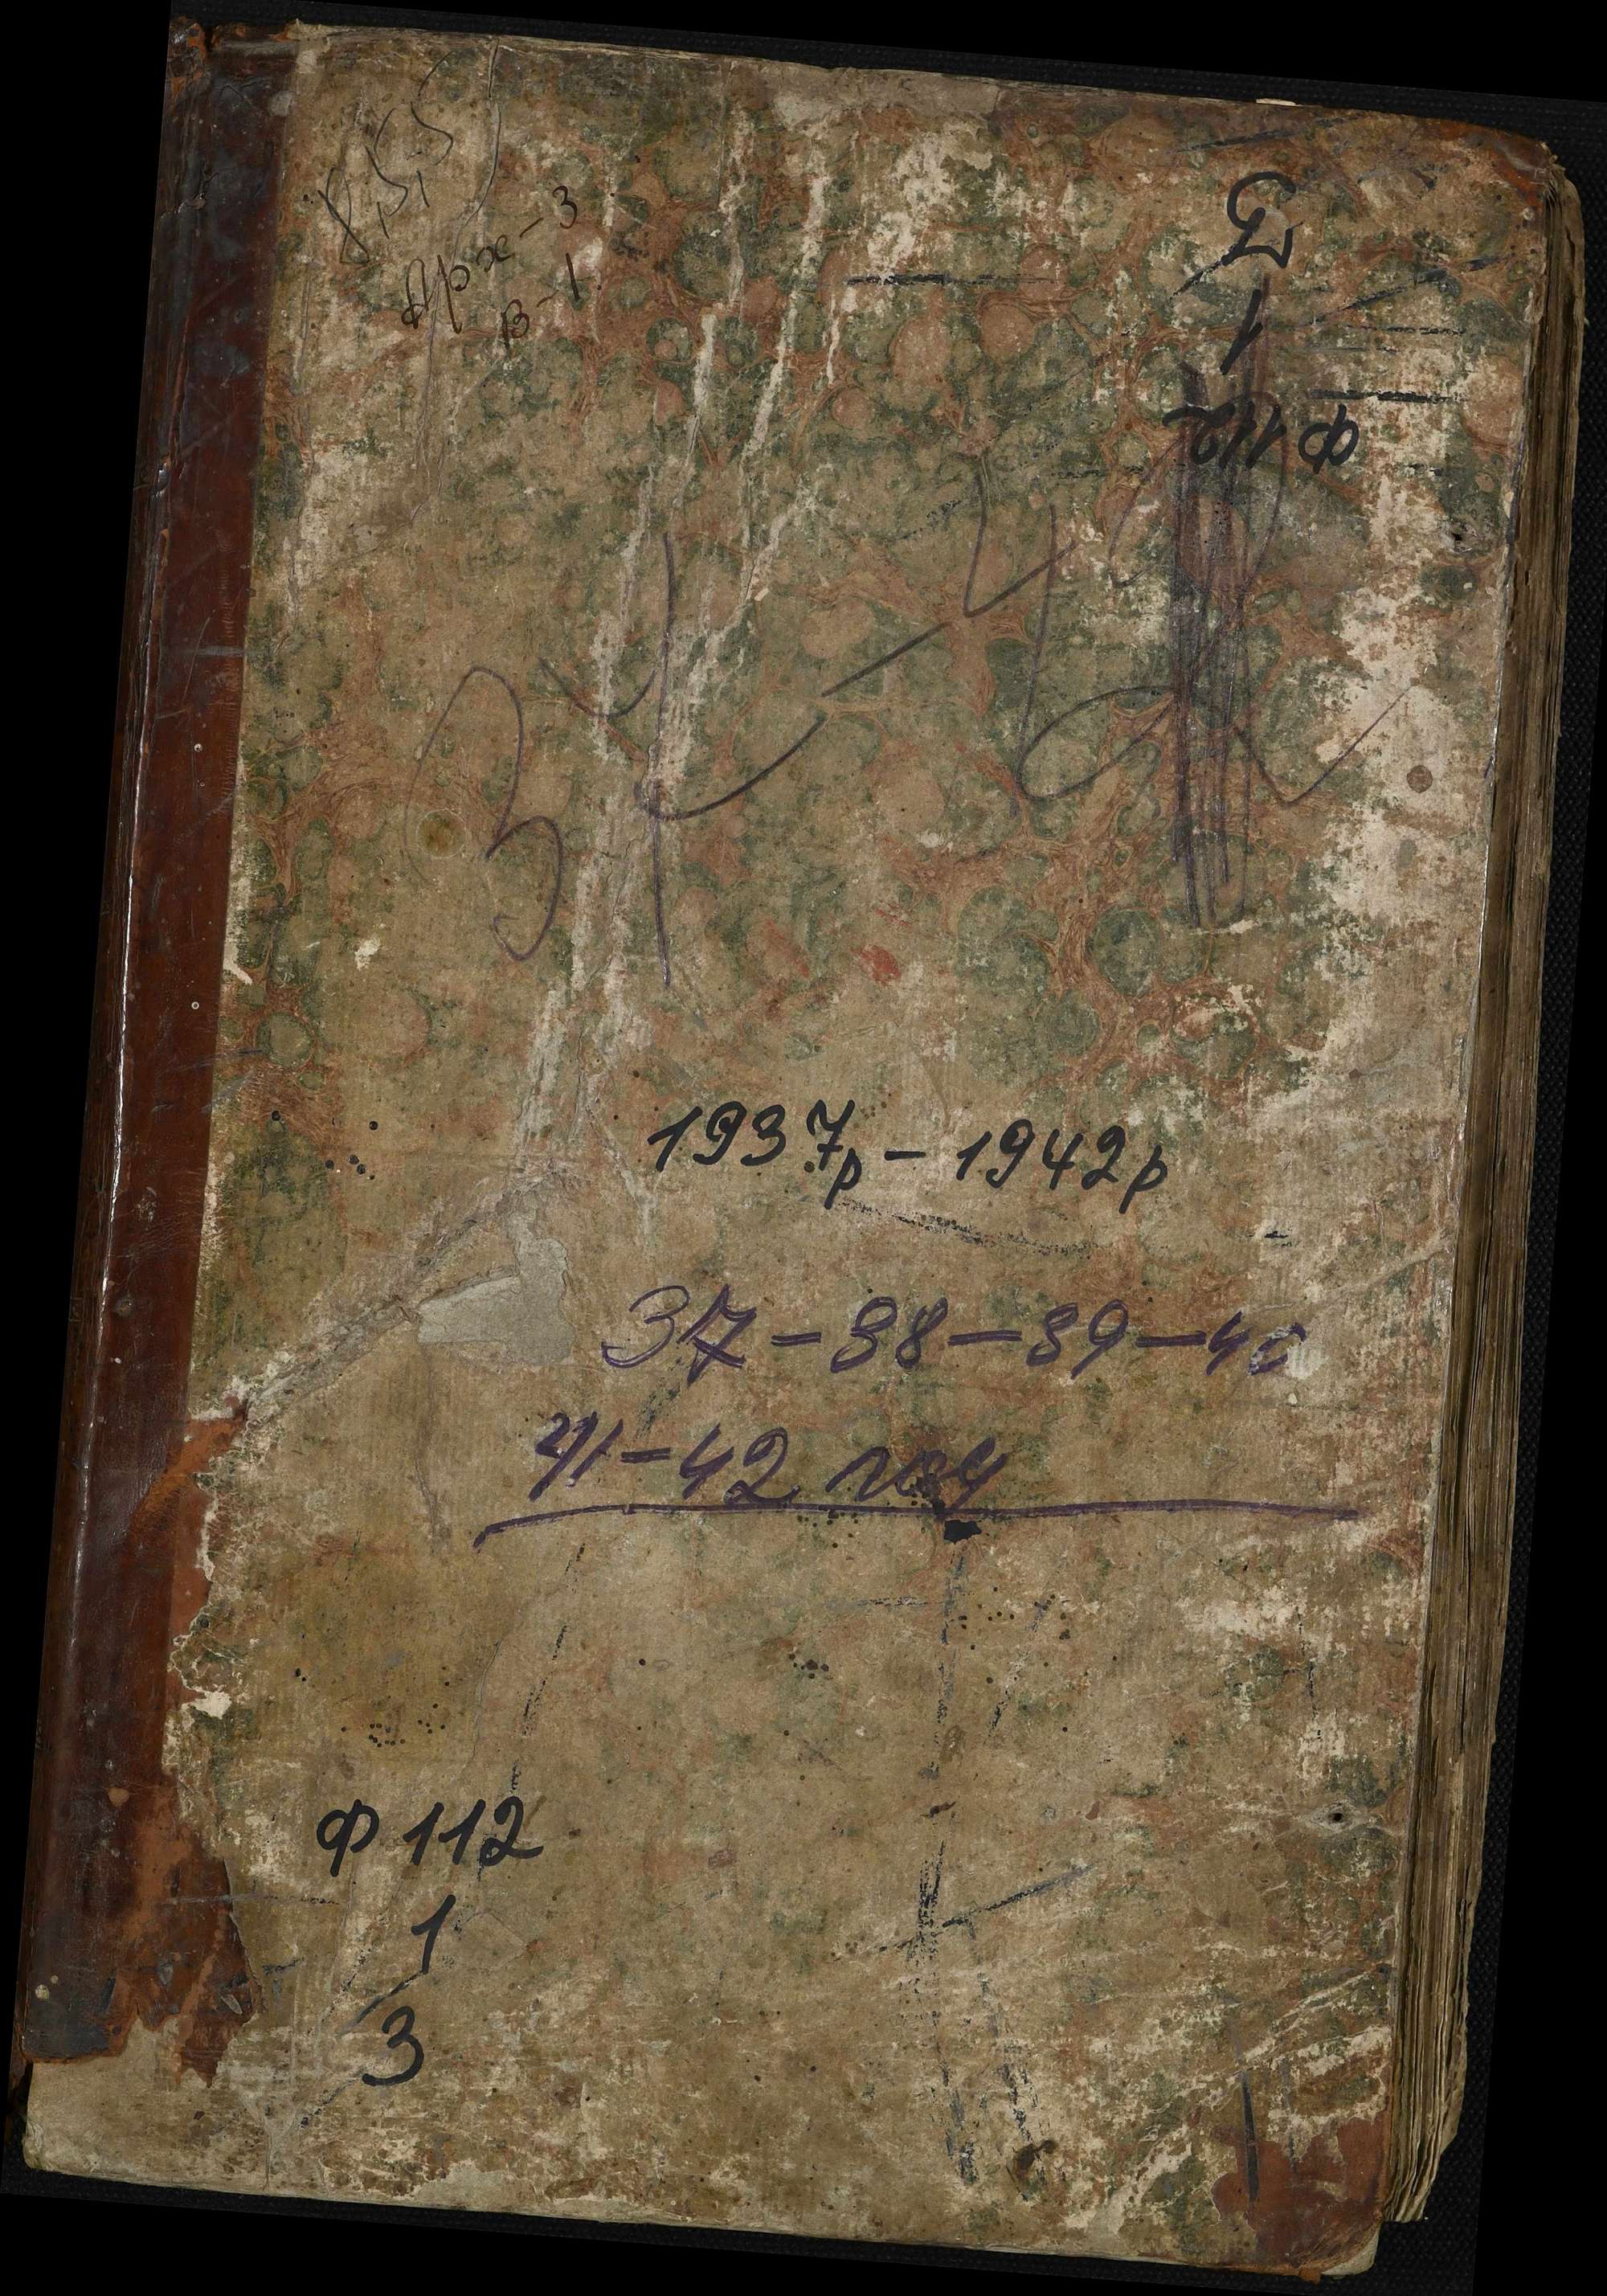 Арх-3
В-1
3
1
Ф 112
37-42
1937р - 1942р
37-38-39-40
41-42 год
Ф 112
1
3